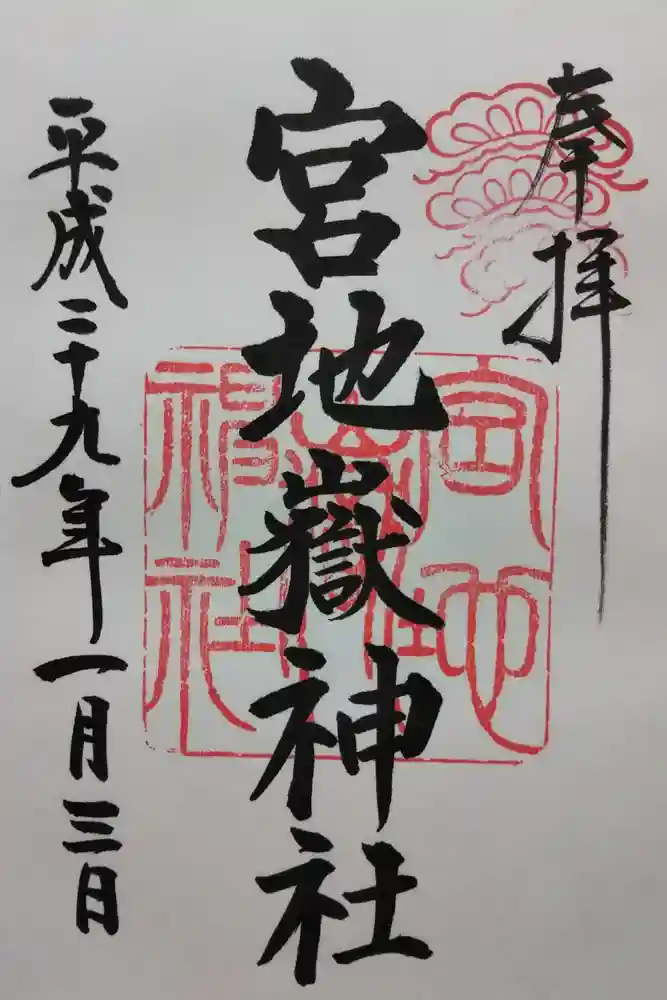 奉拝
宮地嶽神社
平成二十九年一月三日
宮地
嶽
神社